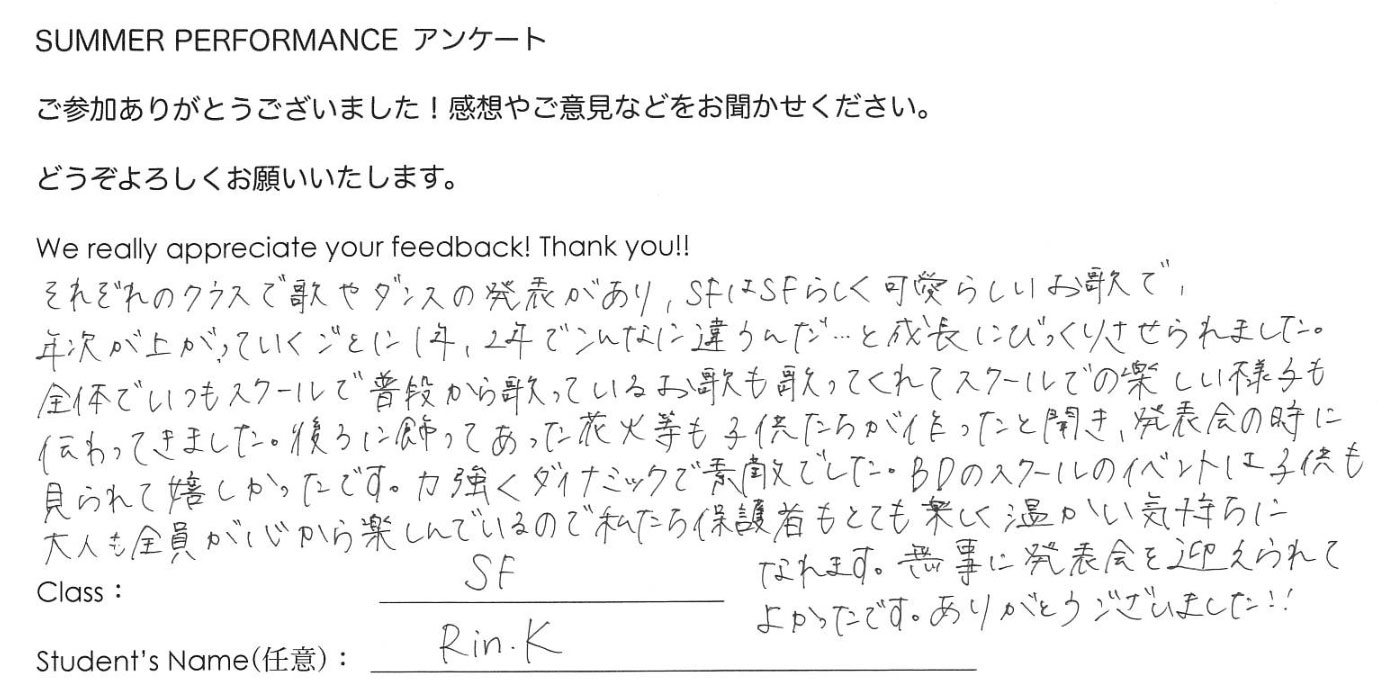 SUMMER PERFORMANCE アンケート
ご参加ありがとうございました！感想やご意見などをお聞かせください。
どうぞよろしくお願いいたします。
We really appreciate your feedback! Thank you!!
それぞれのクラスで歌やダンスの発表があり、SFはSFらしく可愛らしいお歌で、
年次が上がっていくごとに1年、2年でこんなに違うんだ…と成長にびっくりさせられました。
全体でいつもスクールで普段から歌っているお歌も歌ってくれてスクールでの楽しい様子も
伝わってきました。後ろに飾ってあった花火等も子供たちが作ったと聞き、発表会の時に
見られて嬉しかったです。力強くダイナミックで素敵でした。BDのスクールのイベントは子供も
大人も全員が心から楽しんでいるので私たち保護者もとても楽しく温かい気持ちに
なれます。無事に発表会を迎えられて
よかったです。ありがとうございました!!
Class： SF
Student's Name(任意)： Rin.K